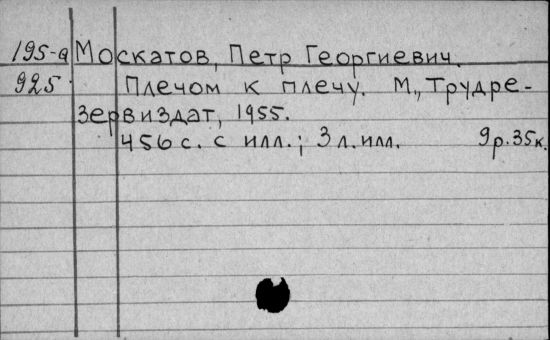 195-а Москатов, Петр Георгиевич.
925 Плечом к плечу. М., Трудре-
зервиздат, 1955.
456 с. с илл.; 3 л. илл. 9р.35к.